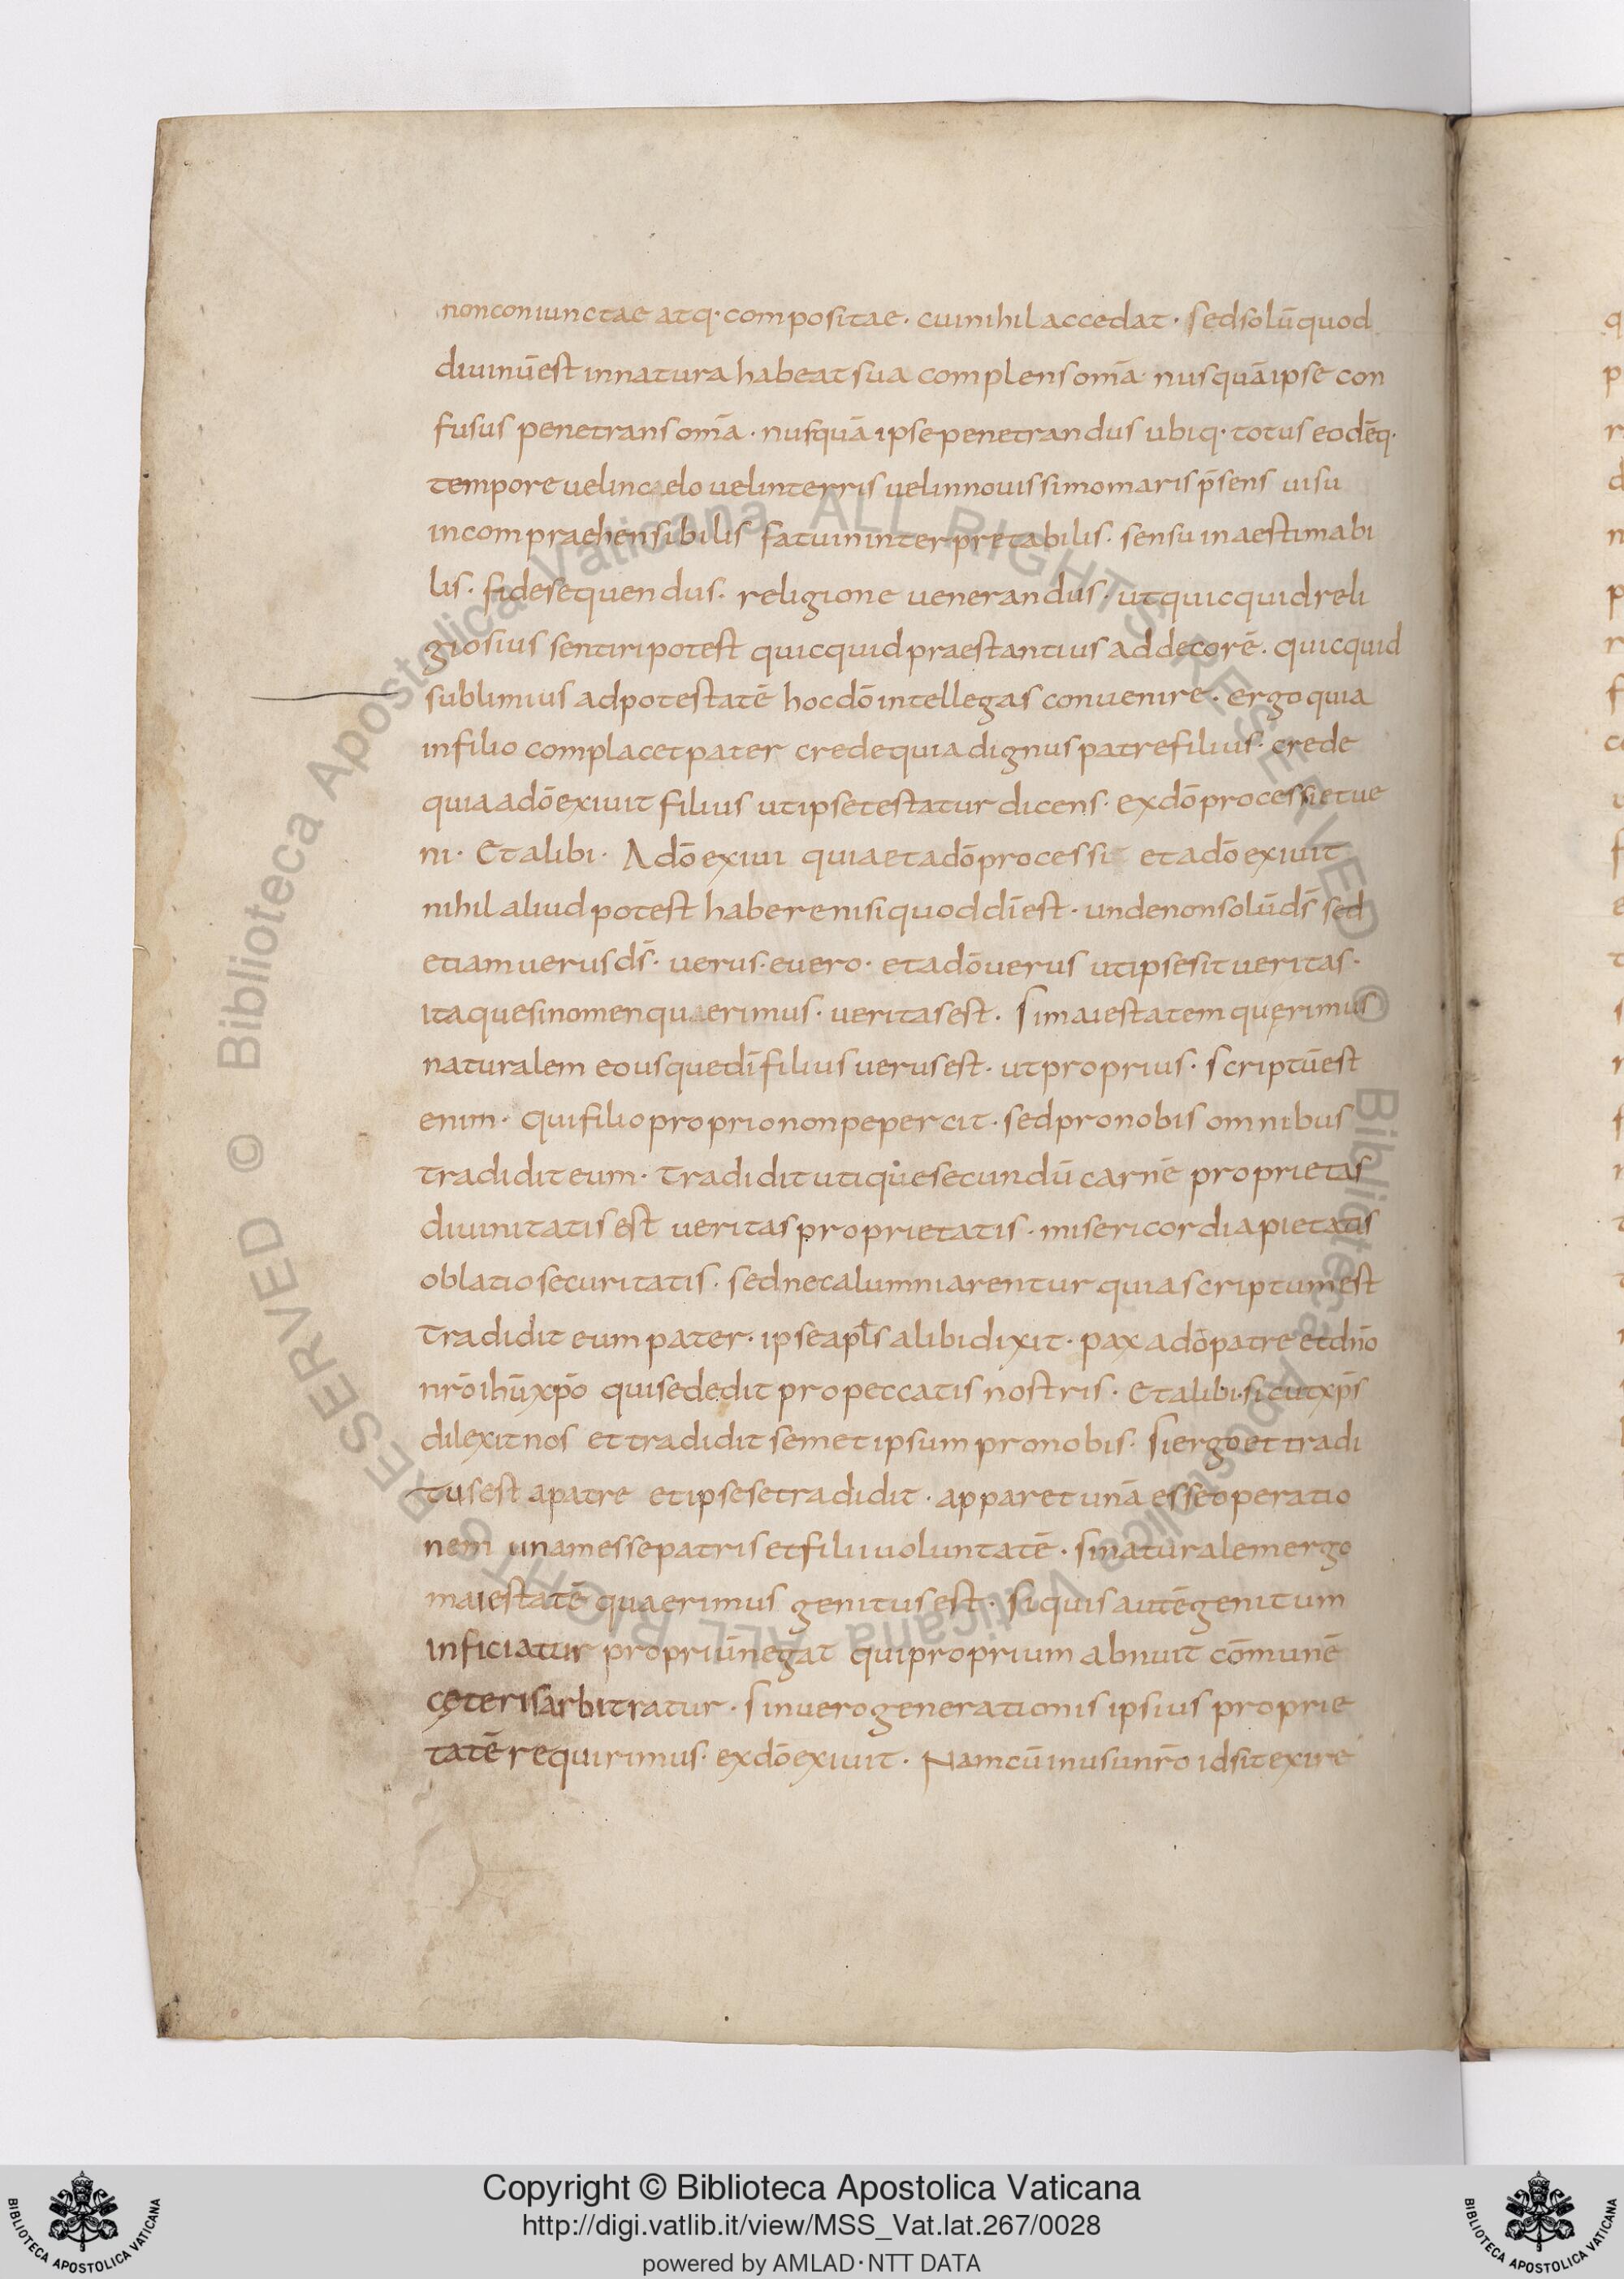 non coniunctae atq· compositae· cui nihil accedat· sed solū quod
diuinū est in natura habeat sua complens om̄a· nusquā ipse con
fusus penetrans om̄a· nusquā ipse penetrandus ubiq· totus eodēq·
tempore uel in caelo uel in terris uel in nouissimo maris p̄sens uisu
incompraehensibilis fatu ininterpretabilis· sensu inaestimabi
lis· fide sequendus· religione uenerandus· ut quicquid reli
giosius sentiri potest quicquid praestantius ad decorē· quicquid
sublimius ad potestatē hoc dō intellegas conuenire· ergo quia
in filio complacet pater crede quia dignus patre filius· crede
quia a dō exiuit filius ut ipse testatur dicens· ex dō processi et ue
ni· Et alibi· A dō exiui quia et a dō processit et a dō exiuit
nihil aliud potest habere nisi quod dī est· unde non solū d̄s sed
etiam uerus d̄s· uerus· e uero· et adō uerus ut ipse sit ueritas·
itaque si nomen quaerimus· ueritas est· Si maiestatem quęrimus
naturalem eousque dī filius uerus est· ut proprius· scriptū est
enim· qui filio proprio non pepercit· sed pro nobis omnibus
tradidit eum· tradidit utique secundū carnē proprietas
diuinitatis est ueritas proprietatis· misericordia pietatis
oblatio securitatis· sed ne calumniarentur quia scriptum est
Tradidit eum pater· ipse apl̄s alibi dixit· pax a dō patre et dn̄o
nr̄o ihū xp̄o qui se dedit pro peccatis nostris· Et alibi· sicut xp̄s
dilexit nos et tradidit semet ipsum pro nobis· Si ergo et tradi
tus est a patre et ipse se tradidit· apparet unā esse operatio
nem unam esse patris et filii uoluntatē· Si naturalem ergo
maiestatē quaerimus genitus est· si quis autē genitum
inficiatur propriū negat qui proprium abnuit cōmunē
cęteris arbitratur· Sin uero generationis ipsius proprie
tatē requirimus· ex dō exiuit· Nam cū in usu nr̄o id sit exire
Copyright © Biblioteca Apostolica Vaticana
http://digi.vatlib.it/view/MSS_Vat.lat.267/0028
powered by AMLAD · NTT DATA
BIBLIOTECA APOSTOLICA VATICANA
BIBLIOTECA APOSTOLICA VATICANA
© Biblioteca Apostolica Vaticana ALL RIGHTS RESERVED
© Biblioteca Apostolica Vaticana ALL RIGHTS RESERVED